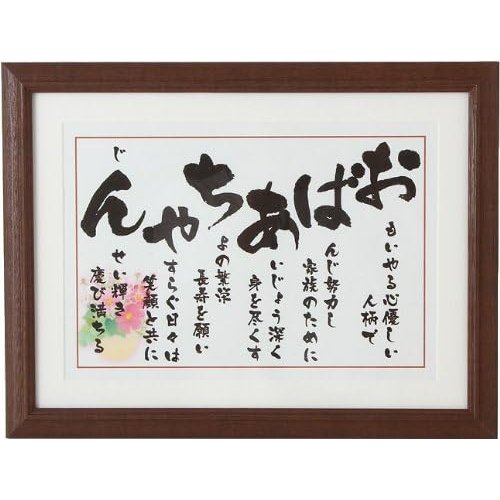 おばあちやん
もいやる心優しい
人柄で
んじ努力し
家族のために
いじょう深く
身を尽くす
よの繁栄
長寿を願い
すらぐ日々は
笑顔と共に
じ
せい輝き
慶び満ちる